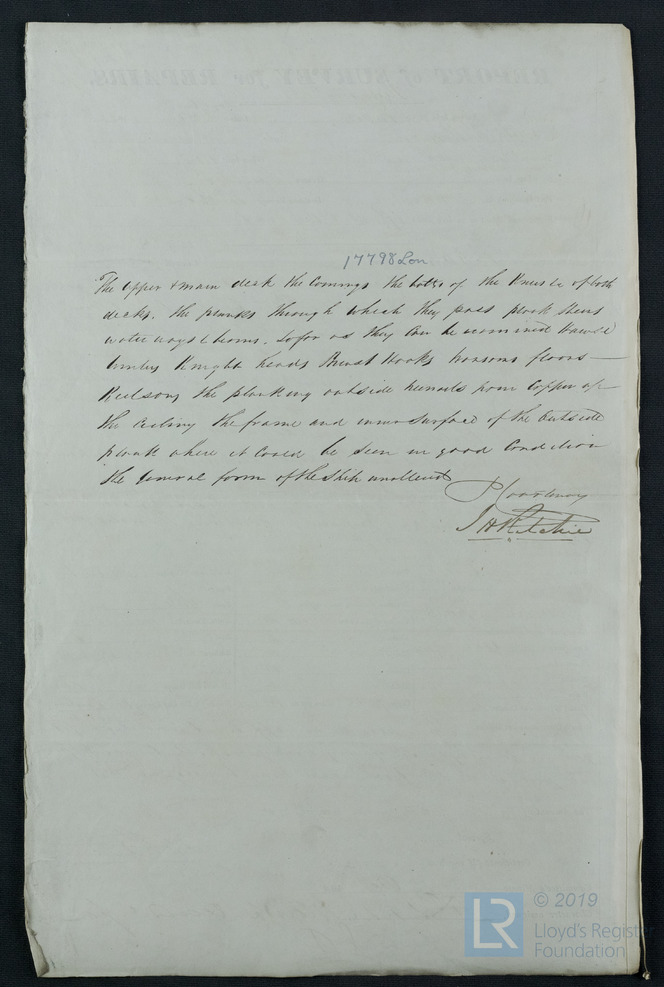 REPORT of SURVEY for REPAIRS,
17798 Lon
The upper & main deck the Comings the bolts of the Knees of both
decks. the planks through which they pass plank sheers
water ways & beams. So far as they Can be examined Hawse
timbers Knight heads Breast Hooks transoms floors —
Keelsons the planking outside treenails from Copper up
the Ceiling the frame and inner surface of the Outside
plank where it could be seen in good Condition
the General form of the Ship unaltered
P Courtenay
J H Ritchie
© 2019
LR
Lloyd's Register
Foundation